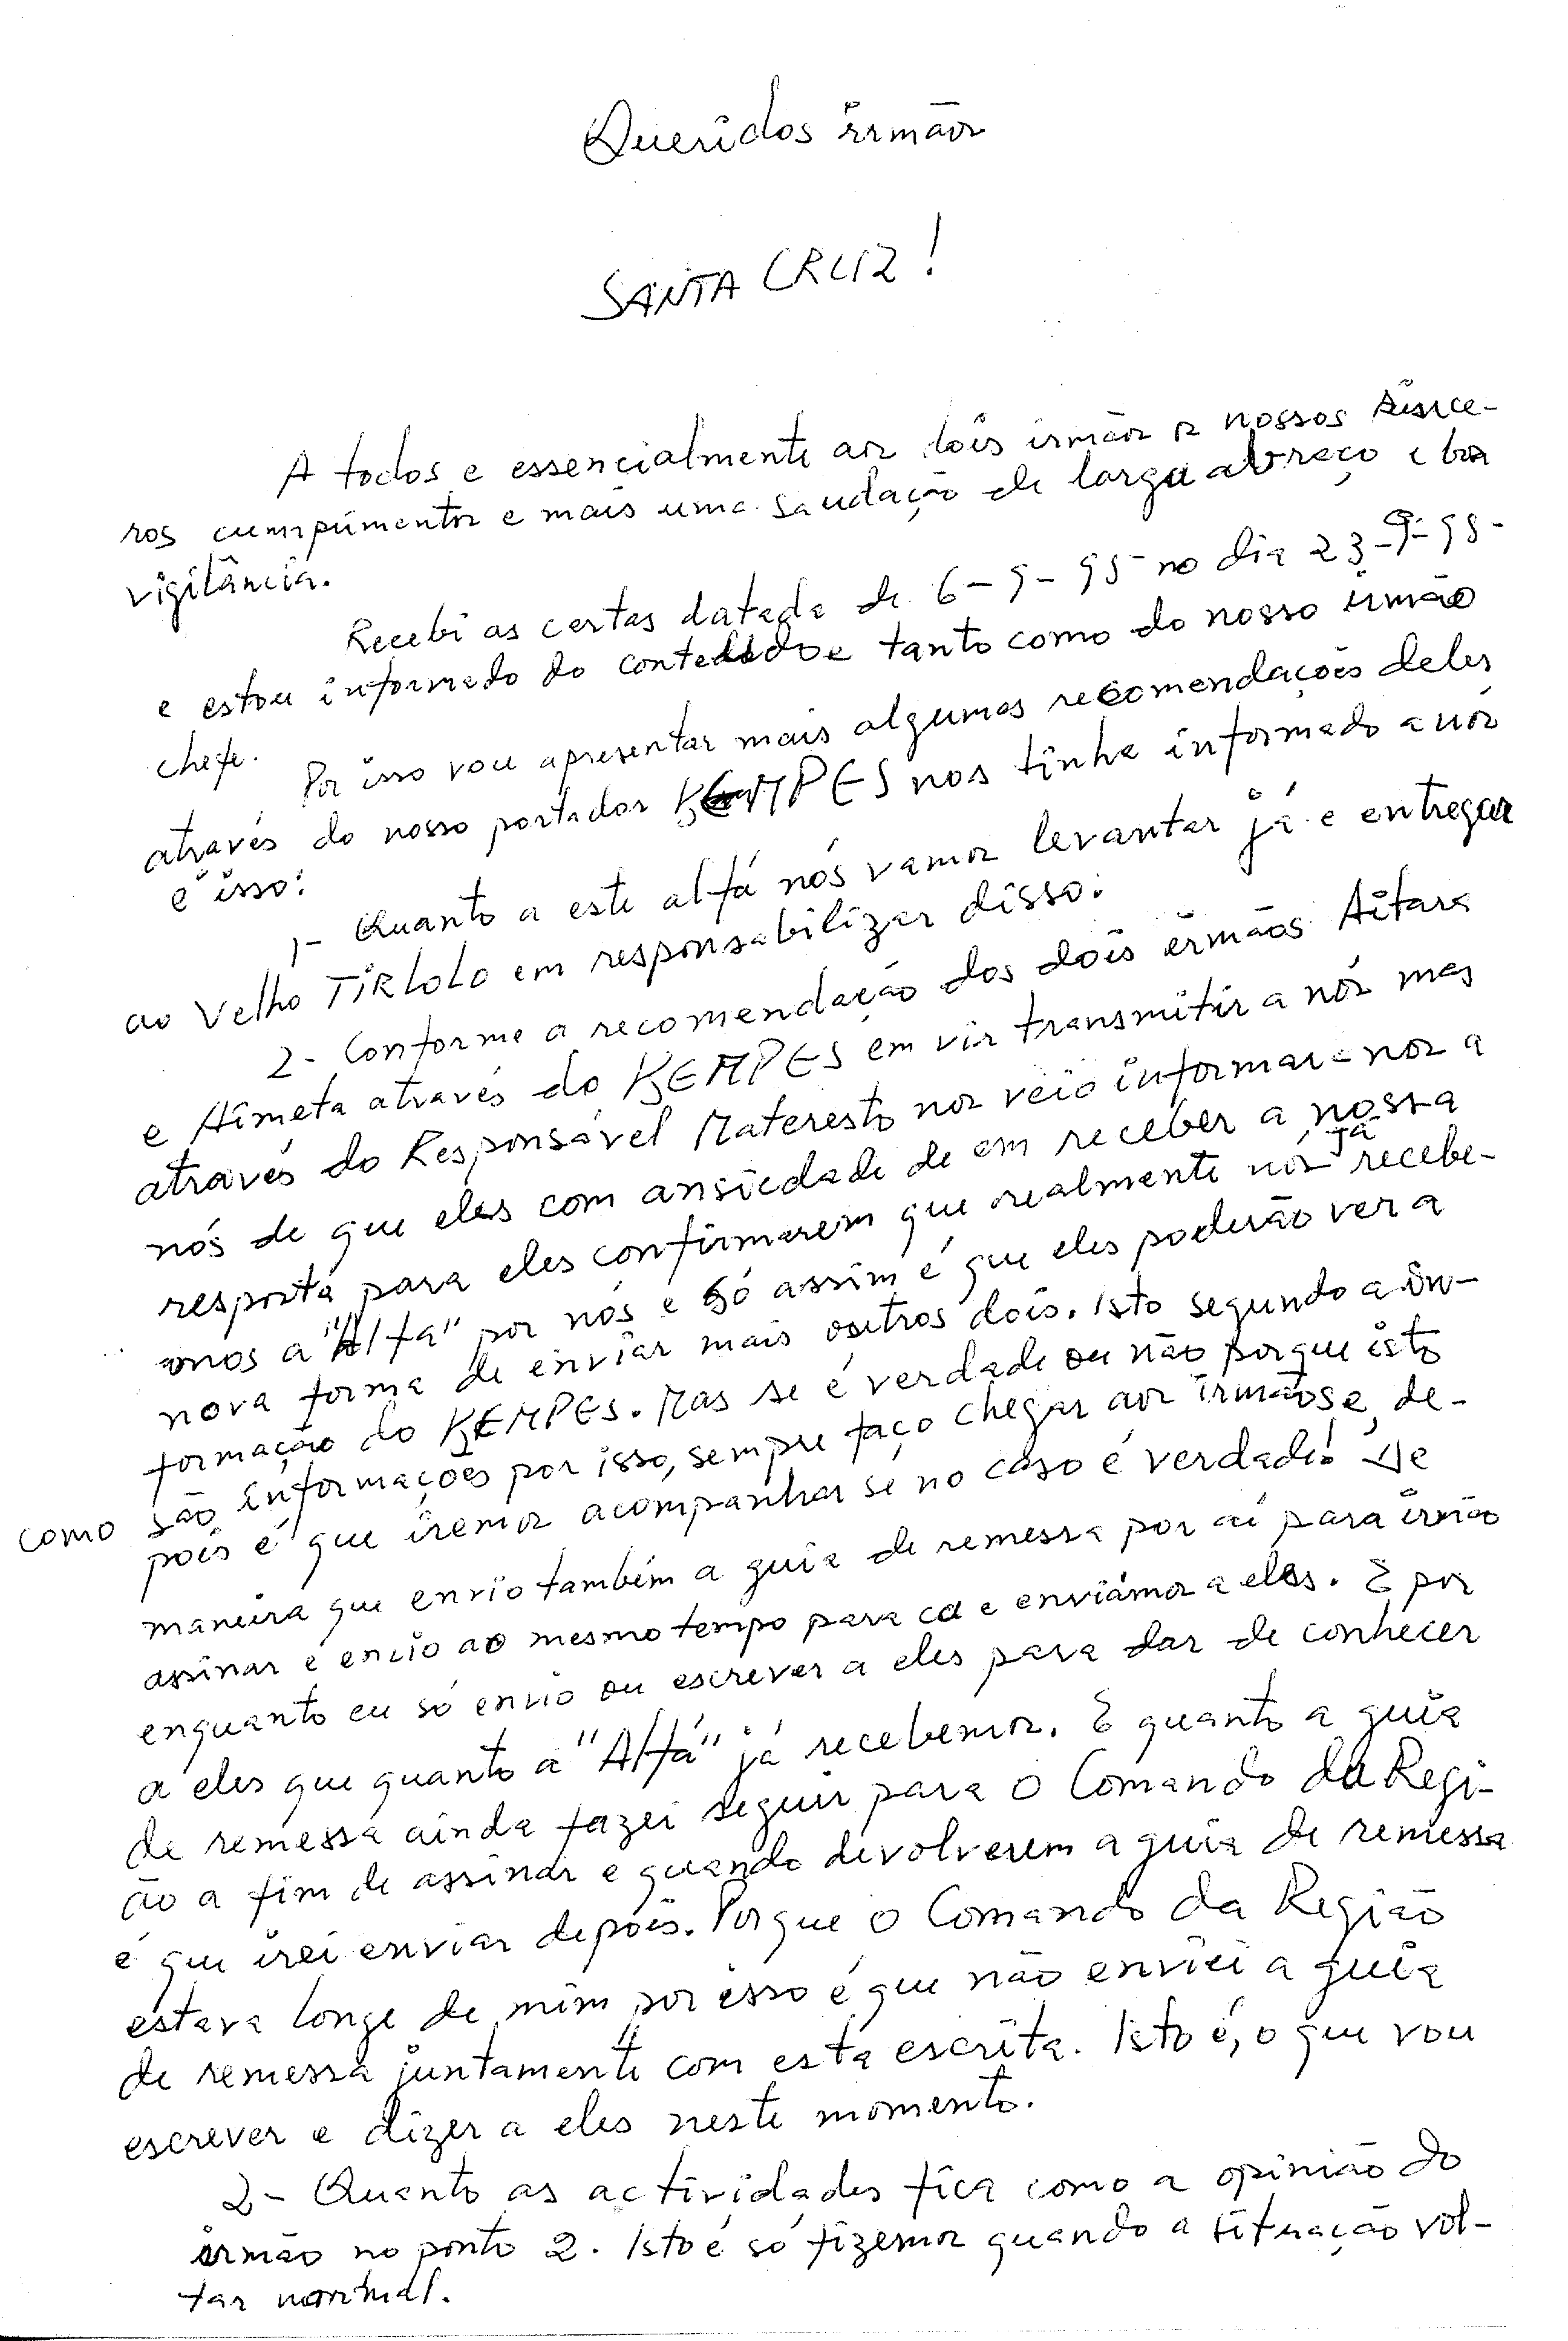 Queridos irmãos
SANTA CRUZ!
A todos e essencialmente aos dois irmãos os nossos since-
ros cumprimentos e mais uma saudação de largo abraço e boa
vigilância.
Recebi as certas datada de 6-9-95 no dia 23-9-95-
e estou informado do conteúdo e tanto como do nosso irmão
chefe.
Por isso vou apresentar mais algumas recomendações deles
através do nosso portador KEMPES nos tinha informado a nós
e isso:
1- Quanto a este alfá nós vamos levantar já e entregar
ao Velho TIRLOLO em responsabilizar disso.
2- Conforme a recomendação dos dois irmãos Aitara
e Aimeta através do KEMPES em vir transmitir a nós mas
através do Responsável Materesto nos veio informar-nos a
nós de que eles com ansiedade de em receber a nossa
resposta para eles confirmarem que realmente nós já recebe-
mos a "Alfa" por nós e só assim é que eles poderão ver a
nova forma de enviar mais outros dois. Isto segundo a in-
formação do KEMPES. Mas se é verdade ou não porque isto
como são informações por isso, sempre faço chegar aos irmãos e, de-
pois é que iremos acompanhar se no caso é verdade! De
maneira que envio também a guia de remessa por aí para irmão
assinar e envio ao mesmo tempo para cá e enviámos a eles. E por
enquanto eu só envio ou escrever a eles para dar de conhecer
a eles que quanto a "Alfá" já recebemos. E quanto a guia
de remessa ainda fazei seguir para o Comando da Regi-
ão a fim de assinar e quando devolverem a guia de remessa
é que irei enviar depois. Porque o Comando da Região
estava longe de mim por isso é que não enviei a guia
de remessa juntamente com esta escrita. Isto é, o que vou
escrever e dizer a eles neste momento.
2- Quanto as actividades fica como a opinião do
irmão no ponto 2. Isto é só fizemos quando a situação vol-
tar normal.